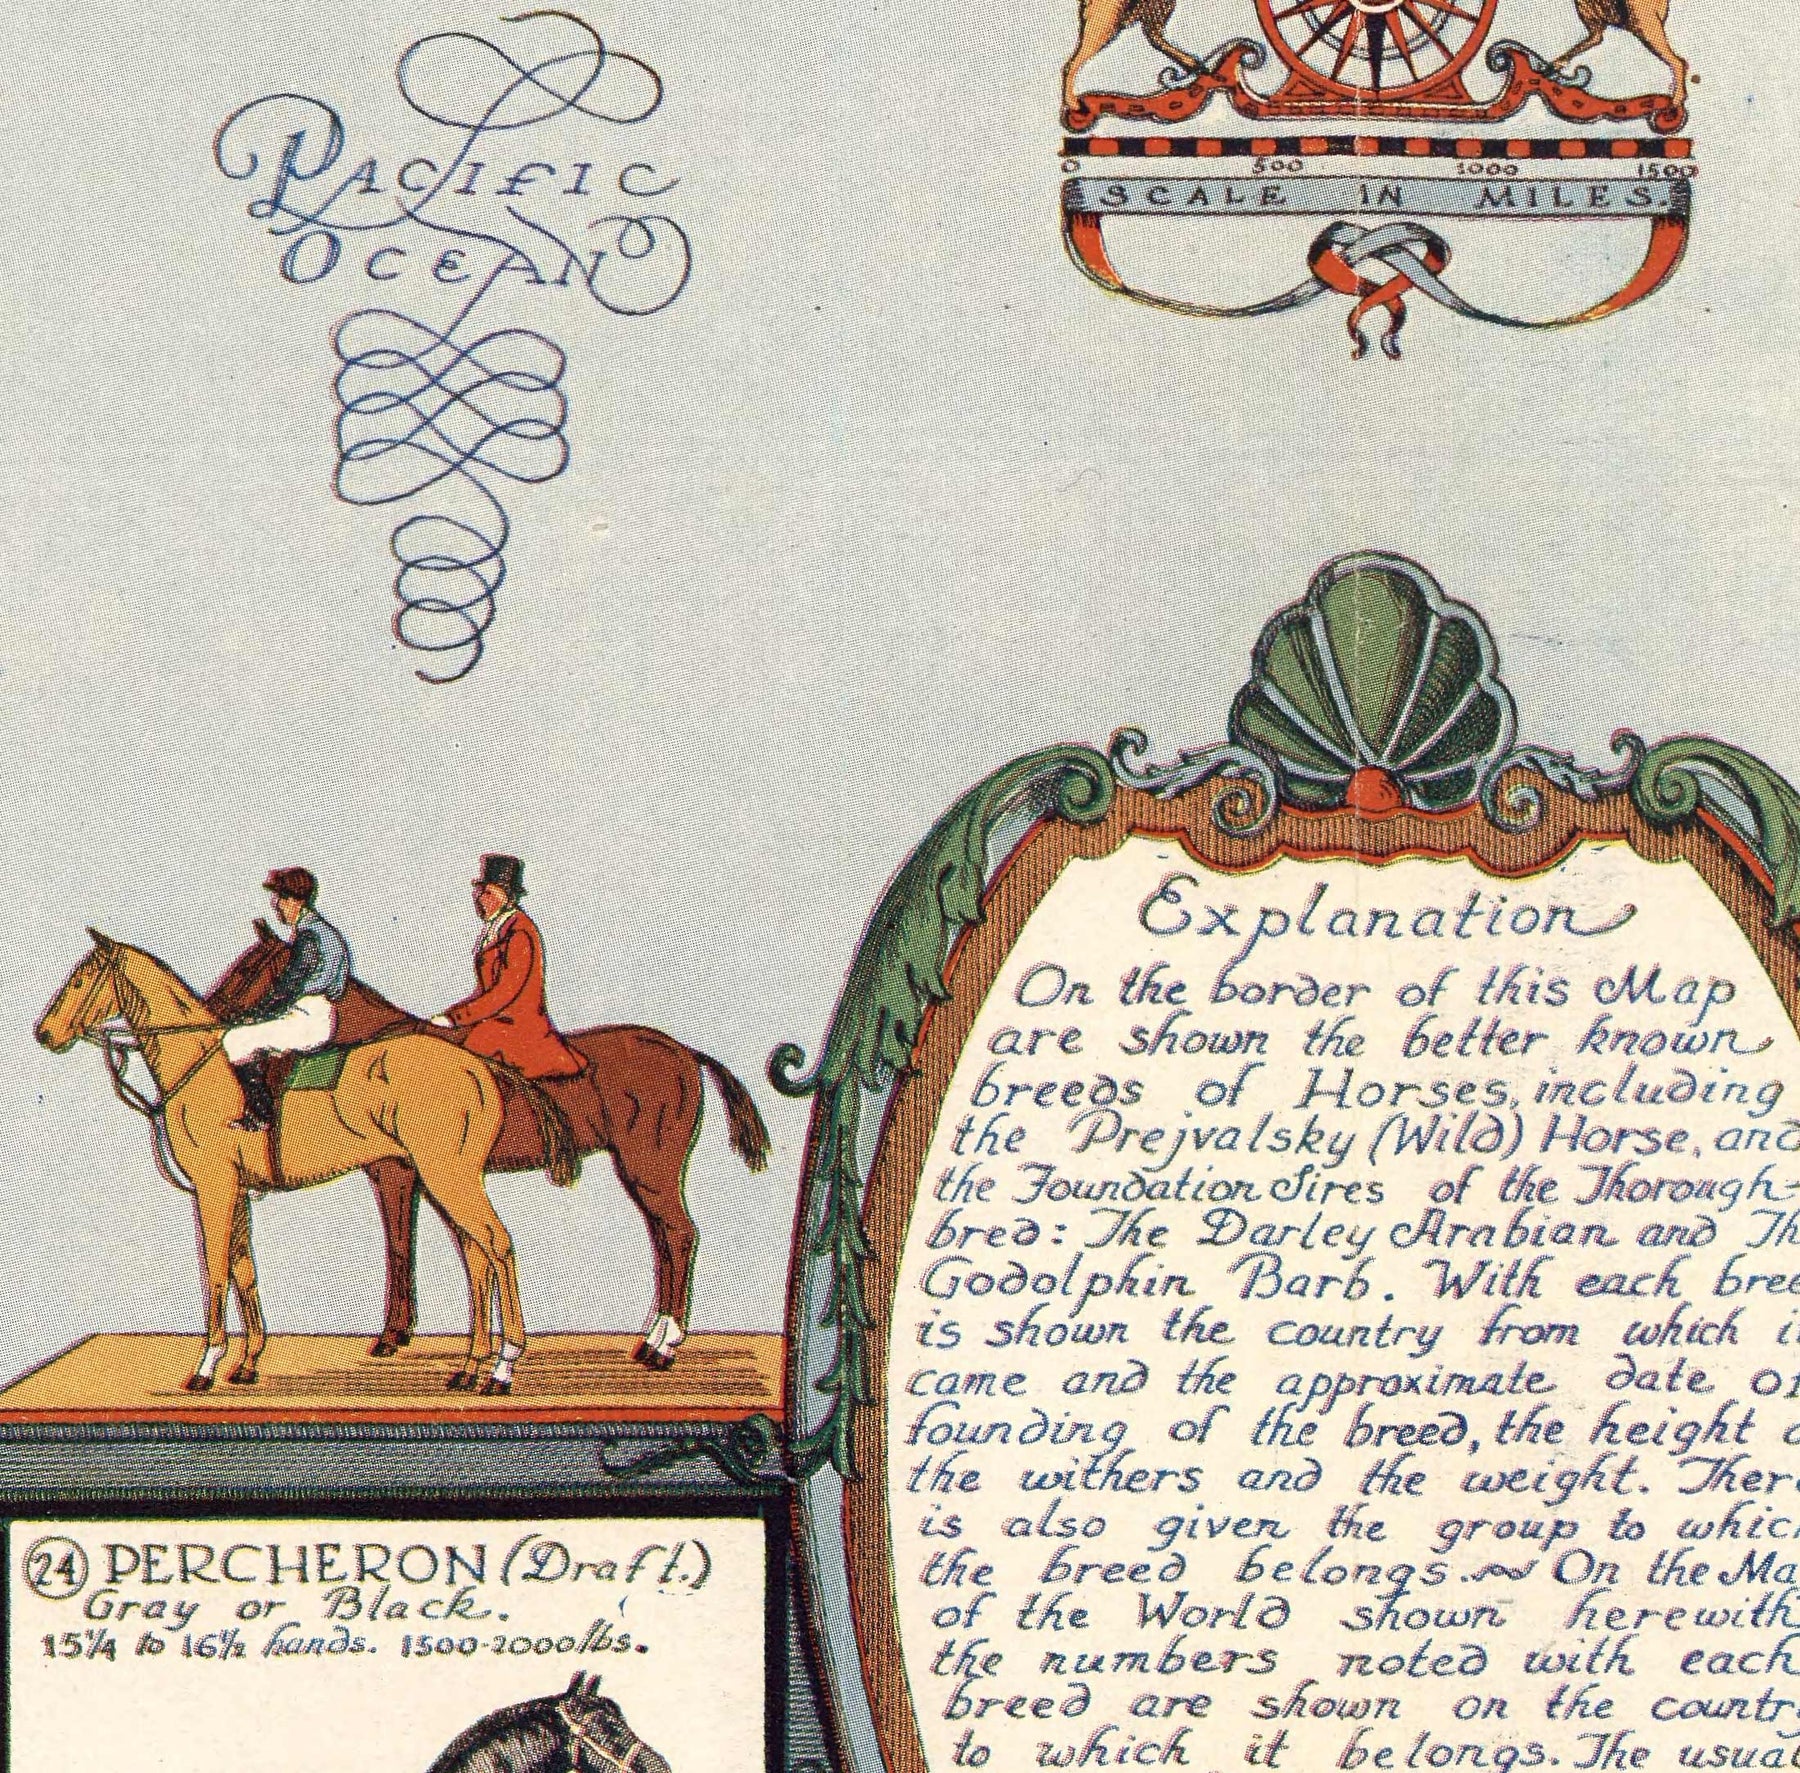 PACIFIC
OCEAN
0 500 1000 1500
SCALE IN MILES.
Explanation
On the border of this Map
are shown the better known
breeds of Horses, including
the Prejvalsky (Wild) Horse, and
the Foundation Sires of the Thorough-
bred: The Darley Arabian and Th
Godolphin Barb. With each bree
is shown the country from which i
came and the approximate date of
founding of the breed, the height o
the withers and the weight. Ther
is also given the group to whic
the breed belongs. ~ On the Ma
of the World shown herewith
the numbers noted with each
breed are shown on the countr
to which it belongs. The usual
24 PERCHERON (Draft.)
Gray or Black.
15 1/4 to 16 1/2 hands. 1500-2000 lbs.